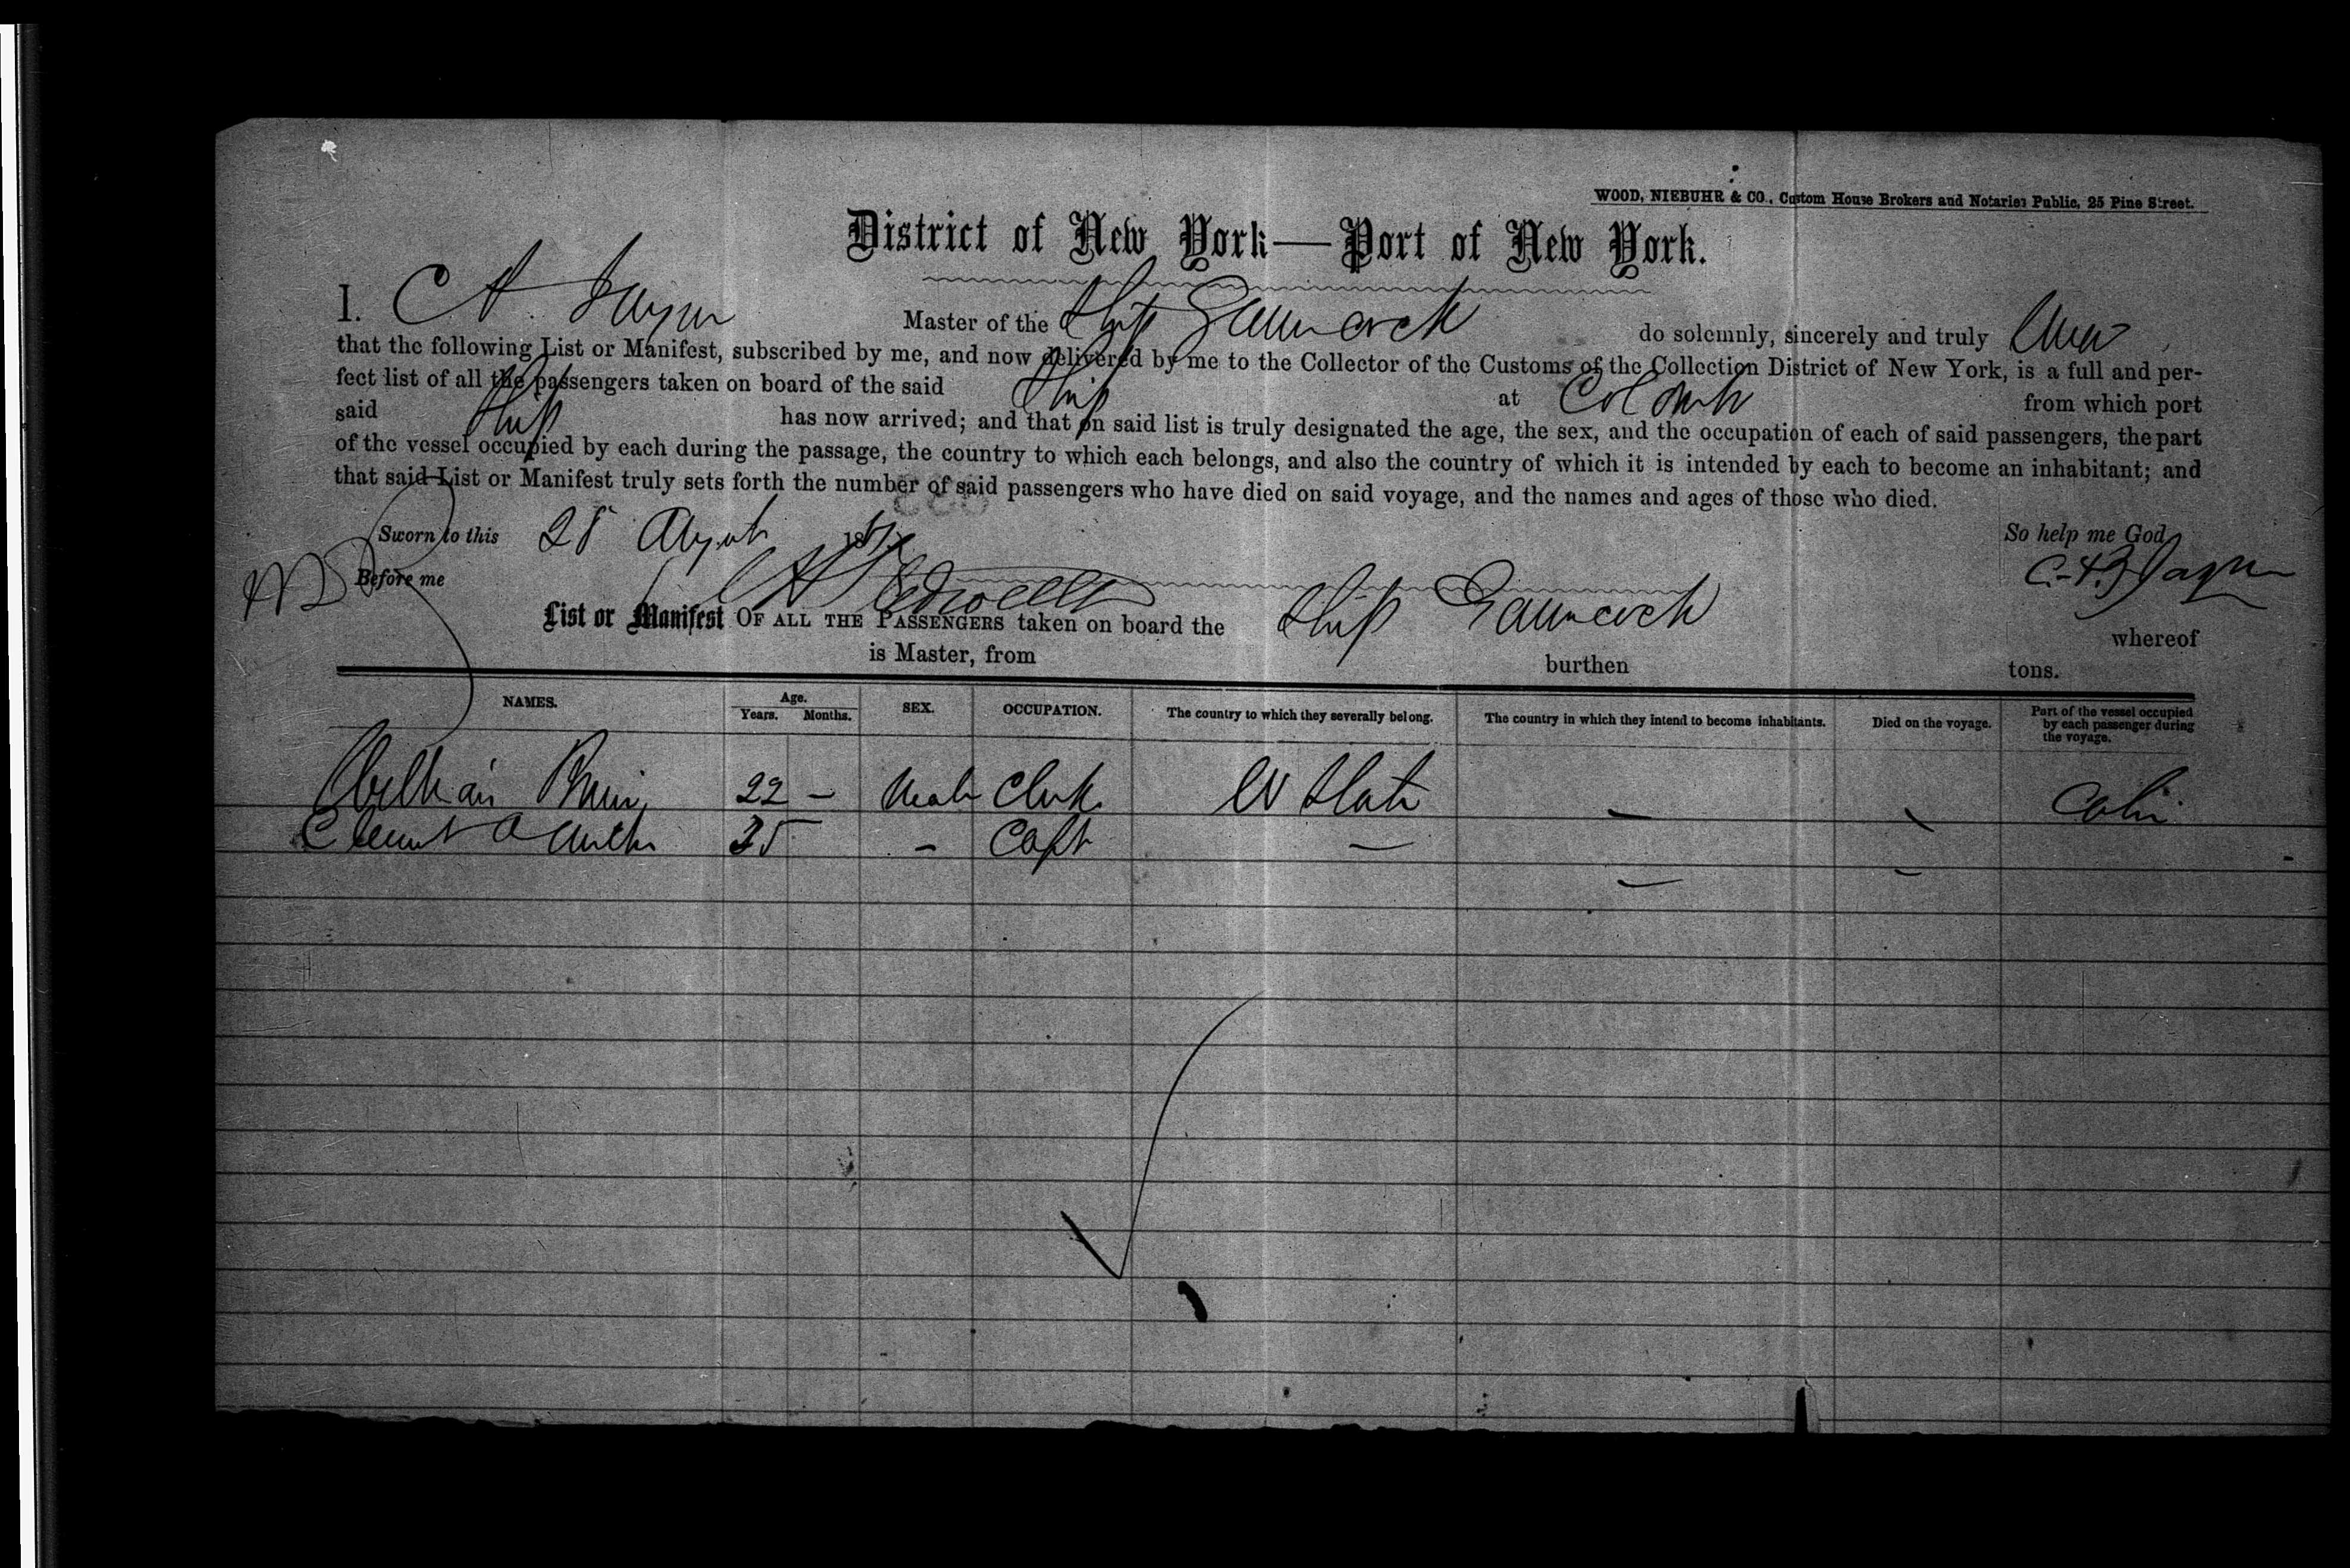 WOOD, NIEBUHR & CO., Custom House Brokers and Notaries Public, 25 Pine Street.
District of New York—Port of New York.
I. C Master of the Ship do solemnly, sincerely and truly
that the following List or Manifest, subscribed by me, and now delivered by me to the Collector of the Customs of the Collection District of New York, is a full and per-
fect list of all the passengers taken on board of the said Ship at from which port
said Ship has now arrived; and that on said list is truly designated the age, the sex, and the occupation of each of said passengers, the part
of the vessel occupied by each during the passage, the country to which each belongs, and also the country of which it is intended by each to become an inhabitant; and
that said List or Manifest truly sets forth the number of said passengers who have died on said voyage, and the names and ages of those who died.
Sworn to this 28 August 18 So help me God
Before me
List or Manifest OF ALL THE PASSENGERS taken on board the Ship whereof
is Master, from burthen tons.
NAMES. Age. Years. Months. SEX. OCCUPATION. The country to which they severally belong. The country in which they intend to become inhabitants. Died on the voyage. Part of the vessel occupied by each passenger during the voyage.
William 22 – Male Clerk U States — – Cabin
Clement 35 – Capt — — –